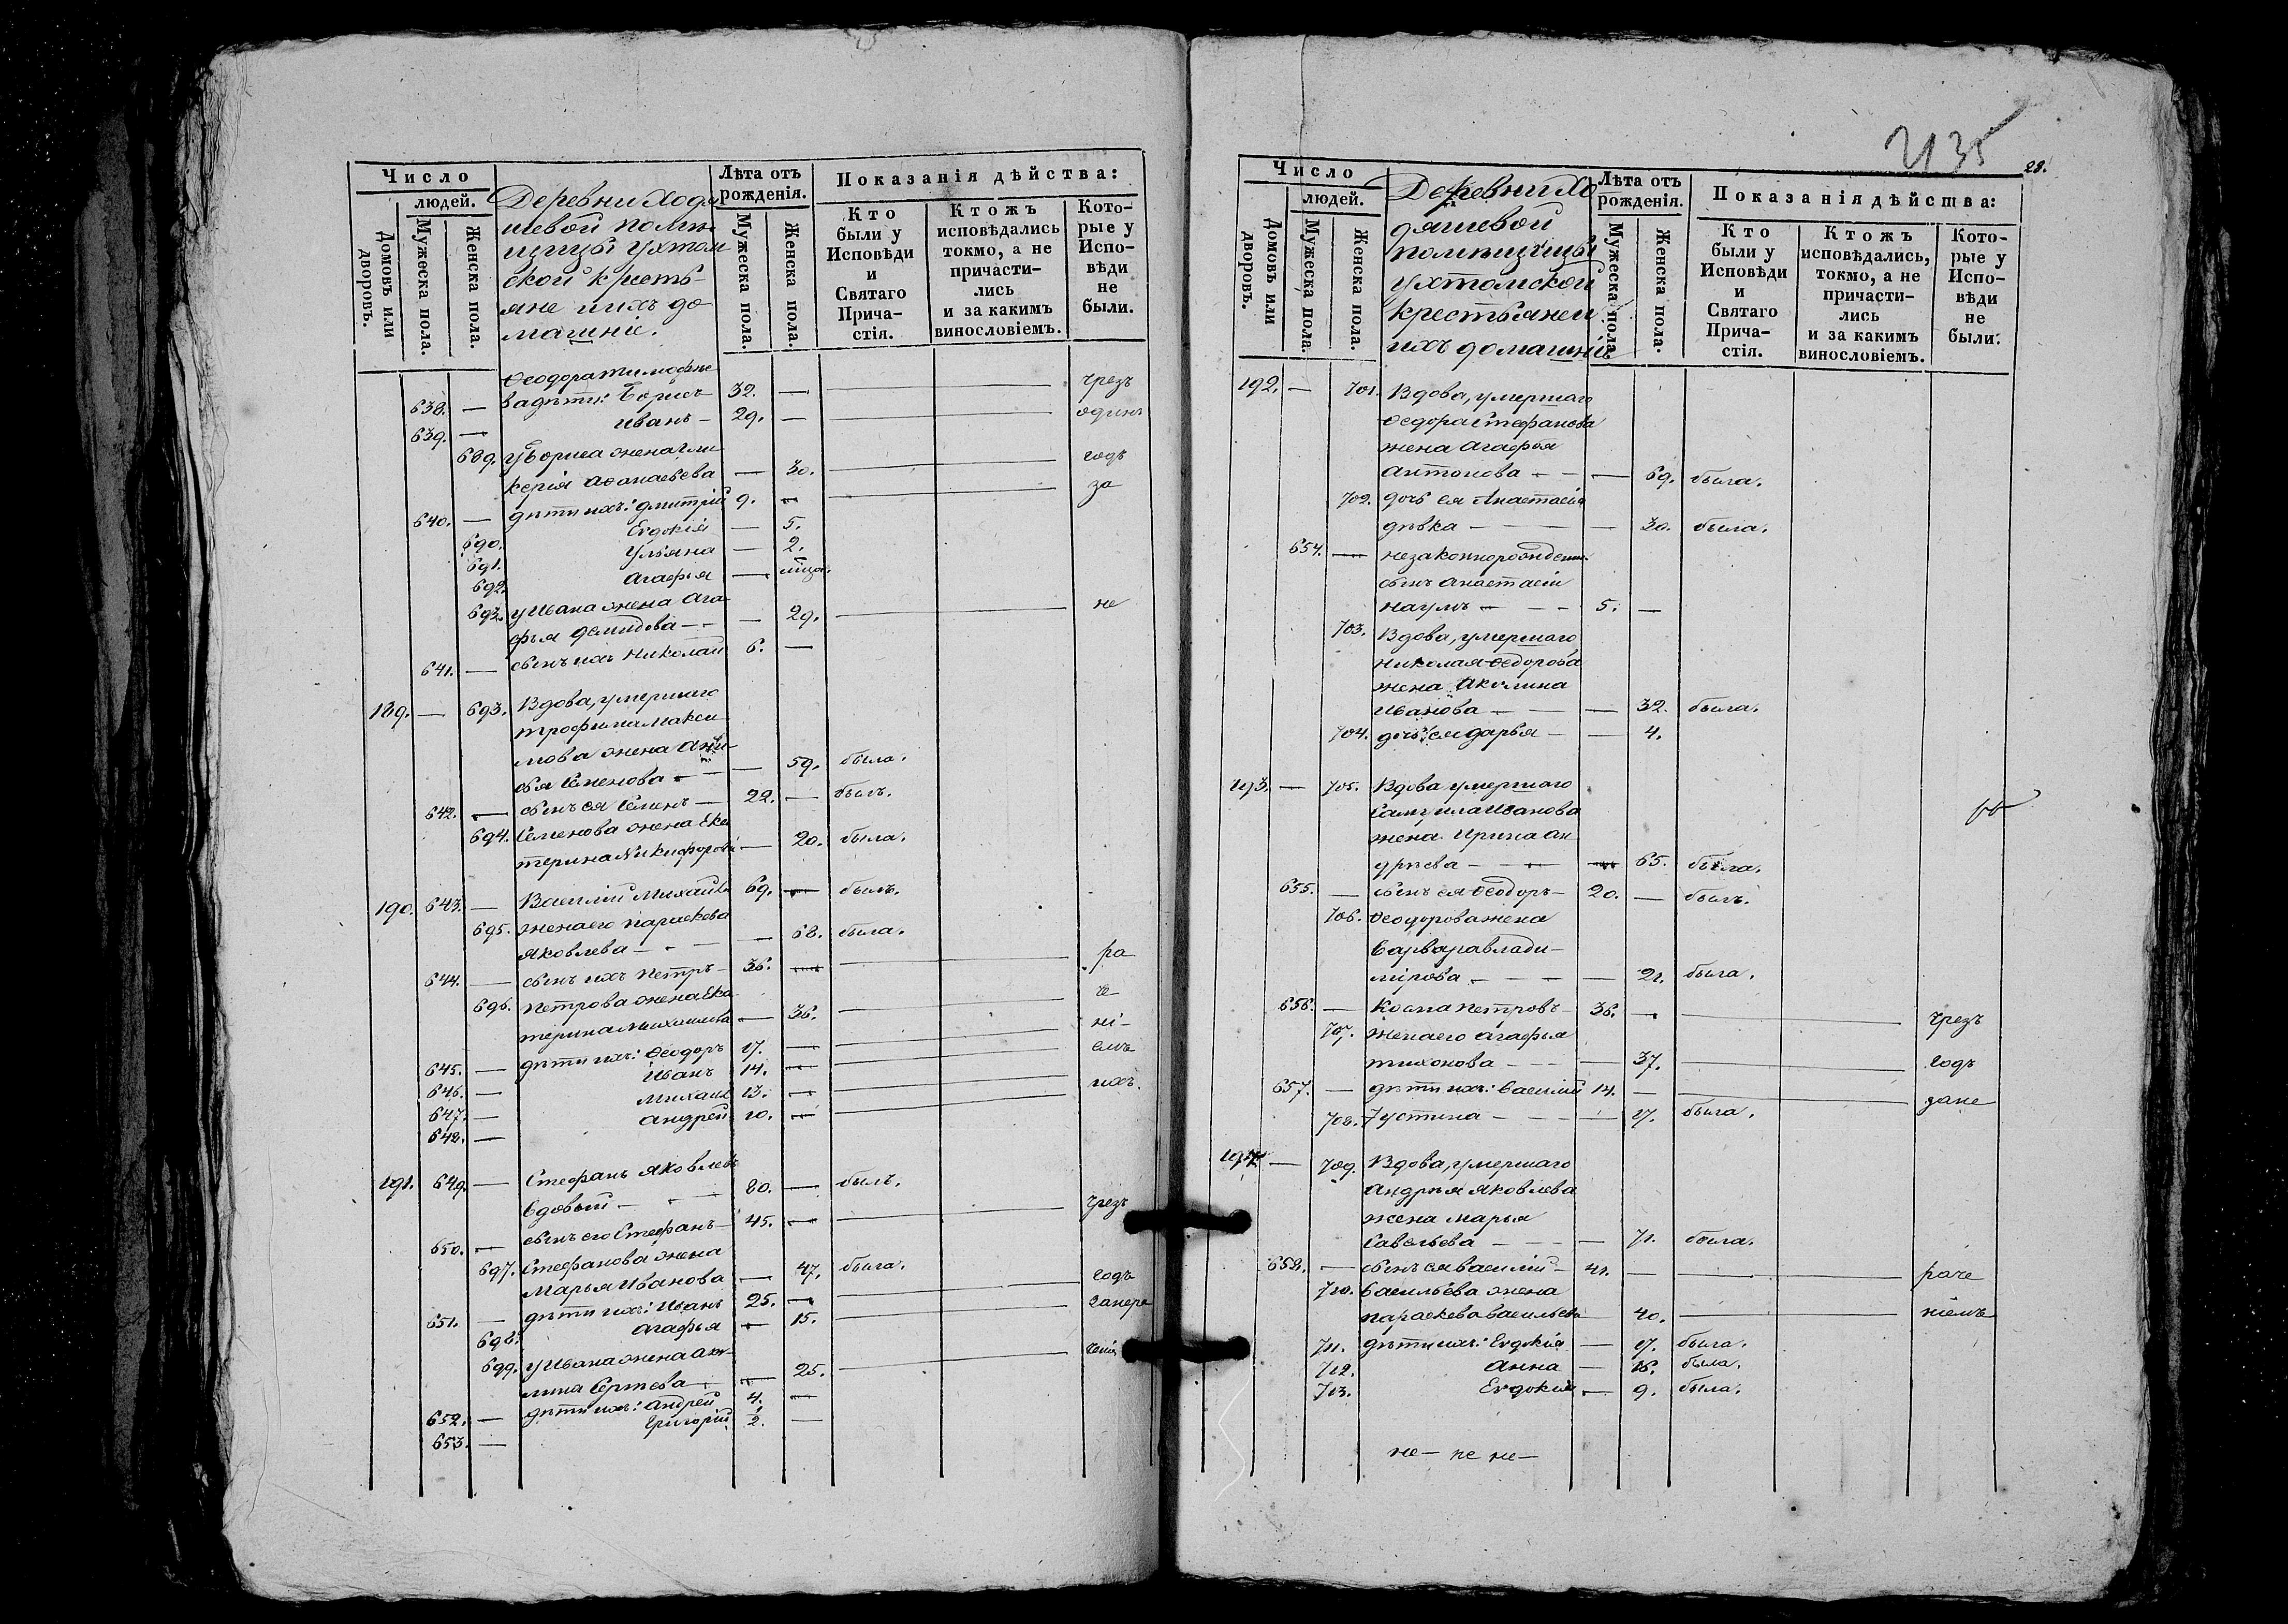 Число
людей.
Домовъ или дворовъ.
Мужеска пола.
Женска пола.
Деревни Ходя
шевой помѣ
щицы Ухтом
ской кресть-
яне и ихъ до-
машніе.
Лѣта отъ рожденія.
Мужеска пола.
Женска пола.
Показанія дѣйства:
Кто были у Исповѣди и Святаго Прича- стія.
Ктожъ исповѣдались токмо, а не причасти- лись и за какимъ винословіемъ.
Кото- рые у Испо- вѣди не были.
Ѳеодора Тимоѳѣе
638. — ва дѣти: Борисъ 32. — чрезъ
639. — Иванъ — 29. — одинъ
689. у Бориса жена Гли
керія Аѳанасьева — 30. годъ
640. — дѣти ихъ: Дмитрій 9. — за
690. Евдокія — 5.
691. Ульяна — 2.
692. Агафья —
693. у Ивана жена Ага-
фья Демидова — — 29. не
641. — сынъ ихъ Николай 6. —
189. — 693. Вдова, умершаго
Трофима Макси
мова жена
Семенова — — 59. была.
642. — сынъ ея Семенъ — 22. — былъ.
694. Семенова жена Ека
терина Никифорова — 20. была.
190. 643. — Василій Михайл 69. — былъ.
695. жена его Параскева
Яковлева — — 68. была.
644. — сынъ ихъ Петръ — 36. — ра
696. Петрова жена Ека
терина Михайлова — 36. че
645. — дѣти ихъ: Ѳеодоръ 17. — ні-
646. — Иванъ 14. — емъ
647. — Михаилъ 13. — ихъ.
648. — Андрей 10. —
191. 649. — Стефанъ Яковлевъ
вдовый — 80. — былъ.
650. — сынъ его Стефанъ — 45. — чрезъ
697. Стефанова жена
Марья Иванова — 47. была.
651. — дѣти ихъ: Иванъ 25. — годъ
698. Агафья — 15. занере
699. у Ивана жена Аку-
лина Сергѣева — — 25.
652. — дѣти ихъ: Андрей 4. —
653. — Григорій 2. —
2135
28.
Число
людей.
Домовъ или дворовъ.
Мужеска пола.
Женска пола.
Деревни Хо
дяшевой
помѣщицы
Ухтомской
крестьяне и
ихъ домашніе
Лѣта отъ рожденія.
Мужеска пола.
Женска пола.
Показанія дѣйства:
Кто были у Исповѣди и Святаго Прича- стія.
Ктожъ исповѣдались, токмо, а не причасти- лись и за какимъ винословіемъ.
Кото- рые у Испо- вѣди не были.
192. — 701. Вдова, умершаго
Ѳедора Стефанова
жена Агафья
Антонова — — — 69. была.
702. дочь ея Анастасія
дѣвка — — — 30. была.
654. — незаконнорожден.
сынъ Анастасіи
Наумъ — — — 5. —
703. Вдова, умершаго
Николая Ѳедорова
жена Акулина
Иванова — — — 32. была.
704. дочь ея Дарья — — 4.
193. — 705. Вдова умершаго
Самуила Иванова
жена Ирина Ан
дрѣева — — — 65. была.
655. — сынъ ея Ѳеодоръ — 20. — былъ.
706. Ѳеодорова жена
Варвара Влади-
мірова — — — 21. была.
656. — Косма Петровъ — 36. — чрезъ
707. жена его Агафья
Тихонова — — — 37. годъ
657. — дѣти ихъ: Василій 14. — зане
708. Іустина — — — 17. была.
194. — 709. Вдова, умершаго
Андрѣя Яковлева
жена Марья
Савельева — — — 71. была.
658. — сынъ ея Василій — 41. — раче
710. Васильева жена
Параскева Васильева — 40. ніемъ
711. дѣти ихъ: Евдокія — 17. была.
712. Анна — 16. была.
713. Евдокія — 9. была.
не — не не —